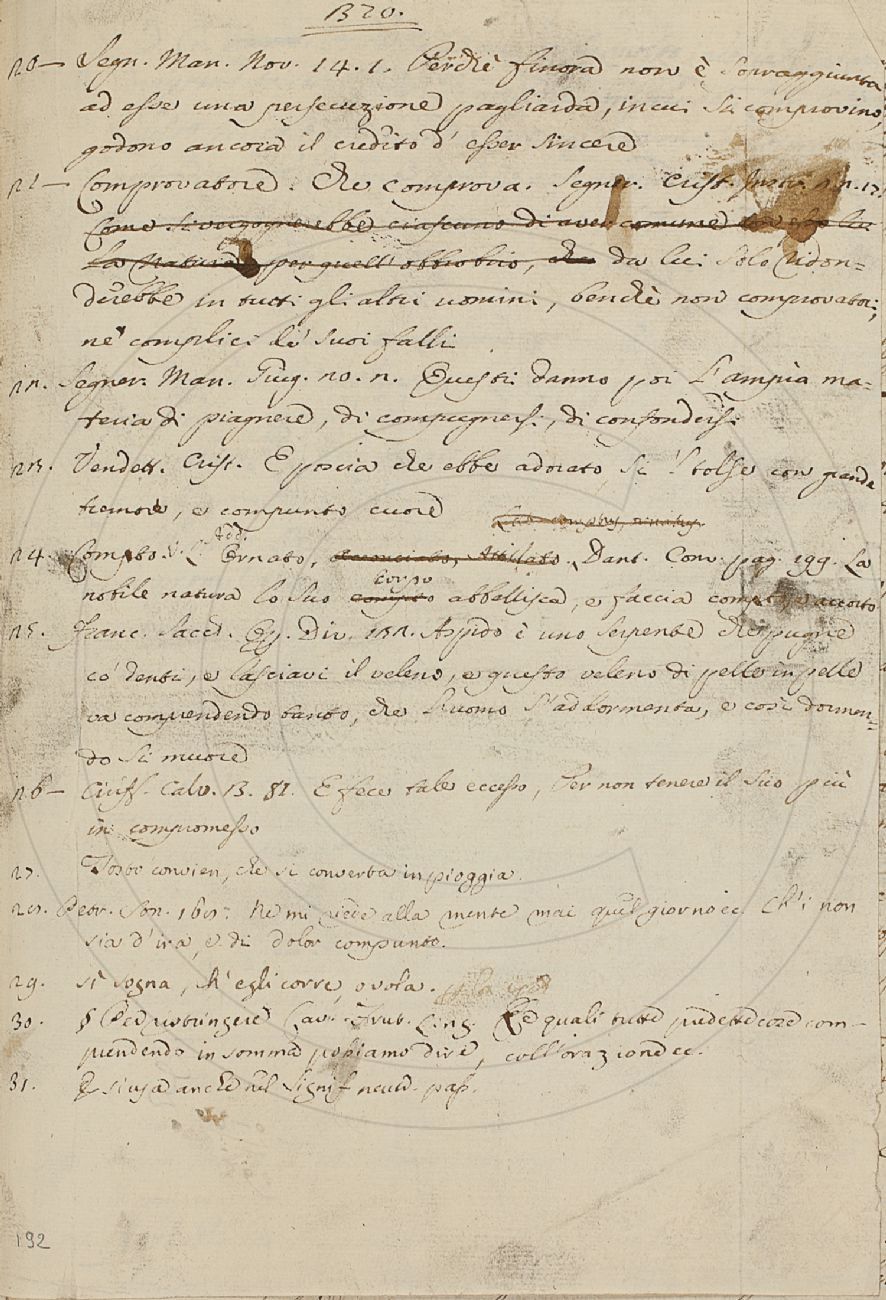 1320.
20— Segn. Man. Nov. 14. 1. Perchè finora non è sovraggiunta
ad esse una persecuzione gagliarda, in cui si comprovino,
godono ancora il credito d' esser sincere
21— Comprovatore. Che comprova. Segner. Crist. Instr.
Come si vergogne ebbe ciascuno di aver comune con esso lui
la Natura, per quell' obbrobrio, che da lui solo ridon=
derebbe in tutti gli altri uomini, benchè non comprovatori,
nè complici de' suoi falli
22. Segner. Man. Giug. 20. 2. Questi danno poi l'ampia ma=
teria di piagnere, di compugnersi, di confondersi.
23. Vendett. Crist. E poscia che ebbe adorato, si 'l tolse con grande
tremore, e compunto cuore
24. Compto. Add. Ornato, acconciato, Attillato. Dant. Conv. pag. 199. La
nobile natura lo suo compto corpo abbellisca, e faccia compto, e accorto
25. Franc. Sacch. Op. Div. Aspido è uno serpente che pugne
co' denti, e lasciavi il veleno, e questo veleno di pelle in pelle
va comprendendo tanto, che l'uomo s'addormenta, e così dormen=
do si muore
26— Ciriff. Calv. 3. 81. E fece tale eccesso, Per non tenere il suo più
in compromesso
27. Tosto convien, che si converta in pioggia.
28. Petr. Son. Ne mi riede alla mente mai quel giorno ec. Ch'i non
sia d'ira, e di dolor compunto.
29. si sogna, ch' egli corre, o vola.
30. § Per ristringere Cav. Frut. Ling. Le quali tutte predette cose com—
prendendo in somma possiamo dire, coll'orazione ec.
31. E si usa anche nel signif. neutr. pass.
192